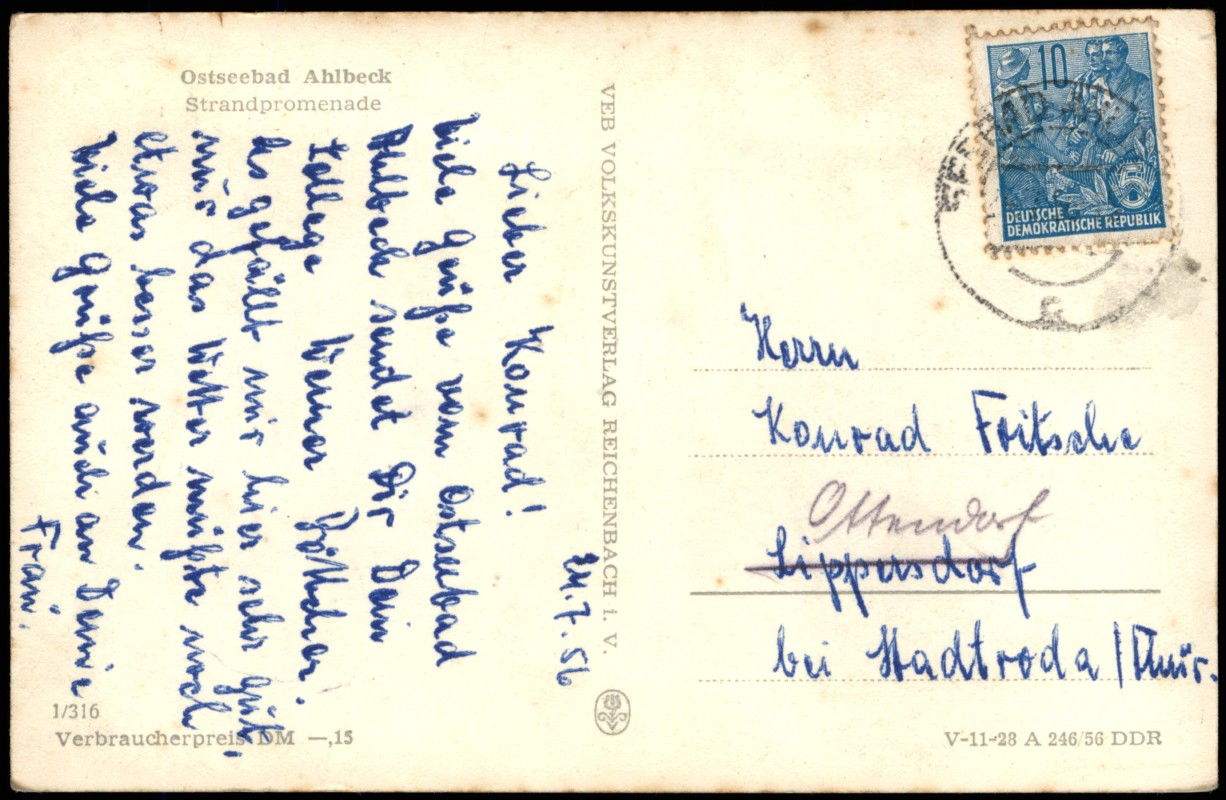 Ostseebad Ahlbeck
Strandpromenade
24.7.56
Lieber Konrad!
Viele Grüße vom Ostseebad
Ahlbeck sendet Dir Dein
Kollege Werner Böttcher.
Es gefällt mir hier sehr gut,
nur das Wetter müßte noch
etwas besser werden.
Viele Grüße auch an Deine
Frau.
1/316
Verbraucherpreis DM —,15
VEB VOLKSKUNSTVERLAG REICHENBACH i. V.
10
5
DEUTSCHE
DEMOKRATISCHE REPUBLIK
Herrn
Konrad Fritsche
Ottendorf
Lippersdorf
bei Stadtroda/Thür.
V-11-28 A 246/56 DDR